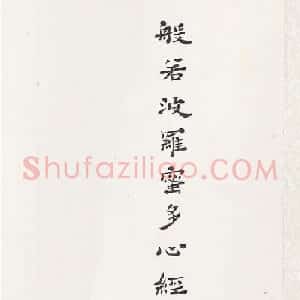 般若波羅蜜多心經
Shufaziliao.COM